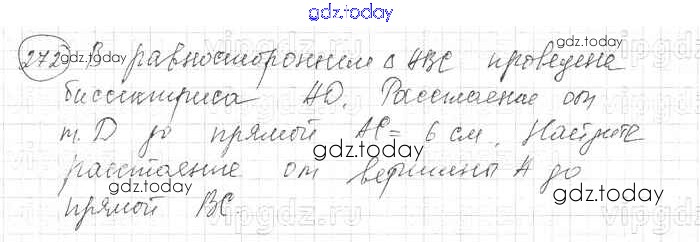 gdz.today
272) В равностороннем Δ ABC проведена
биссектриса AD. Расстояние от
т. D до прямой AC = 6 см. Найдите
расстояние от вершины A до
прямой BC
gdz.today
gdz.today
gdz.today
gdz.today
gdz.today
vipgdz.ru
vipgdz.ru